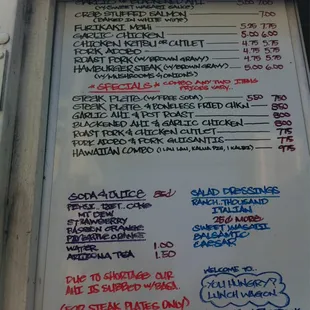 GARLIC & BLACKENED AHI
(W/SWEET WASABI SAUCE)
CRAB STUFFED SALMON 7.00
(BAKED IN WHITE WINE)
FURIKAKI MAHI 5.75 7.75
GARLIC CHICKEN 5.00 6.00
CHICKEN KATSU OR CUTLET 4.75 5.75
PORK ADOBO 4.75 5.75
ROAST PORK (W/BROWN GRAVY) 4.75 5.75
HAMBURGER STEAK (W/BROWN GRAVY) 5.00 6.00
(W/MUSHROOMS & ONIONS)
*SPECIALS* COMBO ANY TWO ITEMS
PRICES VARY
STEAK PLATE (W/FREE SODA) 550 750
STEAK PLATE & BONELESS FRIED CHKN 850
GARLIC AHI & POT ROAST 800
BLACKENED AHI & GARLIC CHICKEN 800
ROAST PORK & CHICKEN CUTLET 775
PORK ADOBO & PORK GUISANTIS 775
HAWAIIAN COMBO 975
SODA & JUICE 85¢
PEPSI, DIET, COKE
MT DEW
STRAWBERRY
PASSION ORANGE
WATER 1.00
ARIZONA TEA 1.50
SALAD DRESSINGS
RANCH, THOUSAND
ITALIAN
25¢ MORE
SWEET WASABI
BALSAMIC
CAESAR
DUE TO SHORTAGE OUR
AHI IS SUBBED W/BASA
(FOR STEAK PLATES ONLY)
WELCOME TO
YOU HUNGRY?
LUNCH WAGON